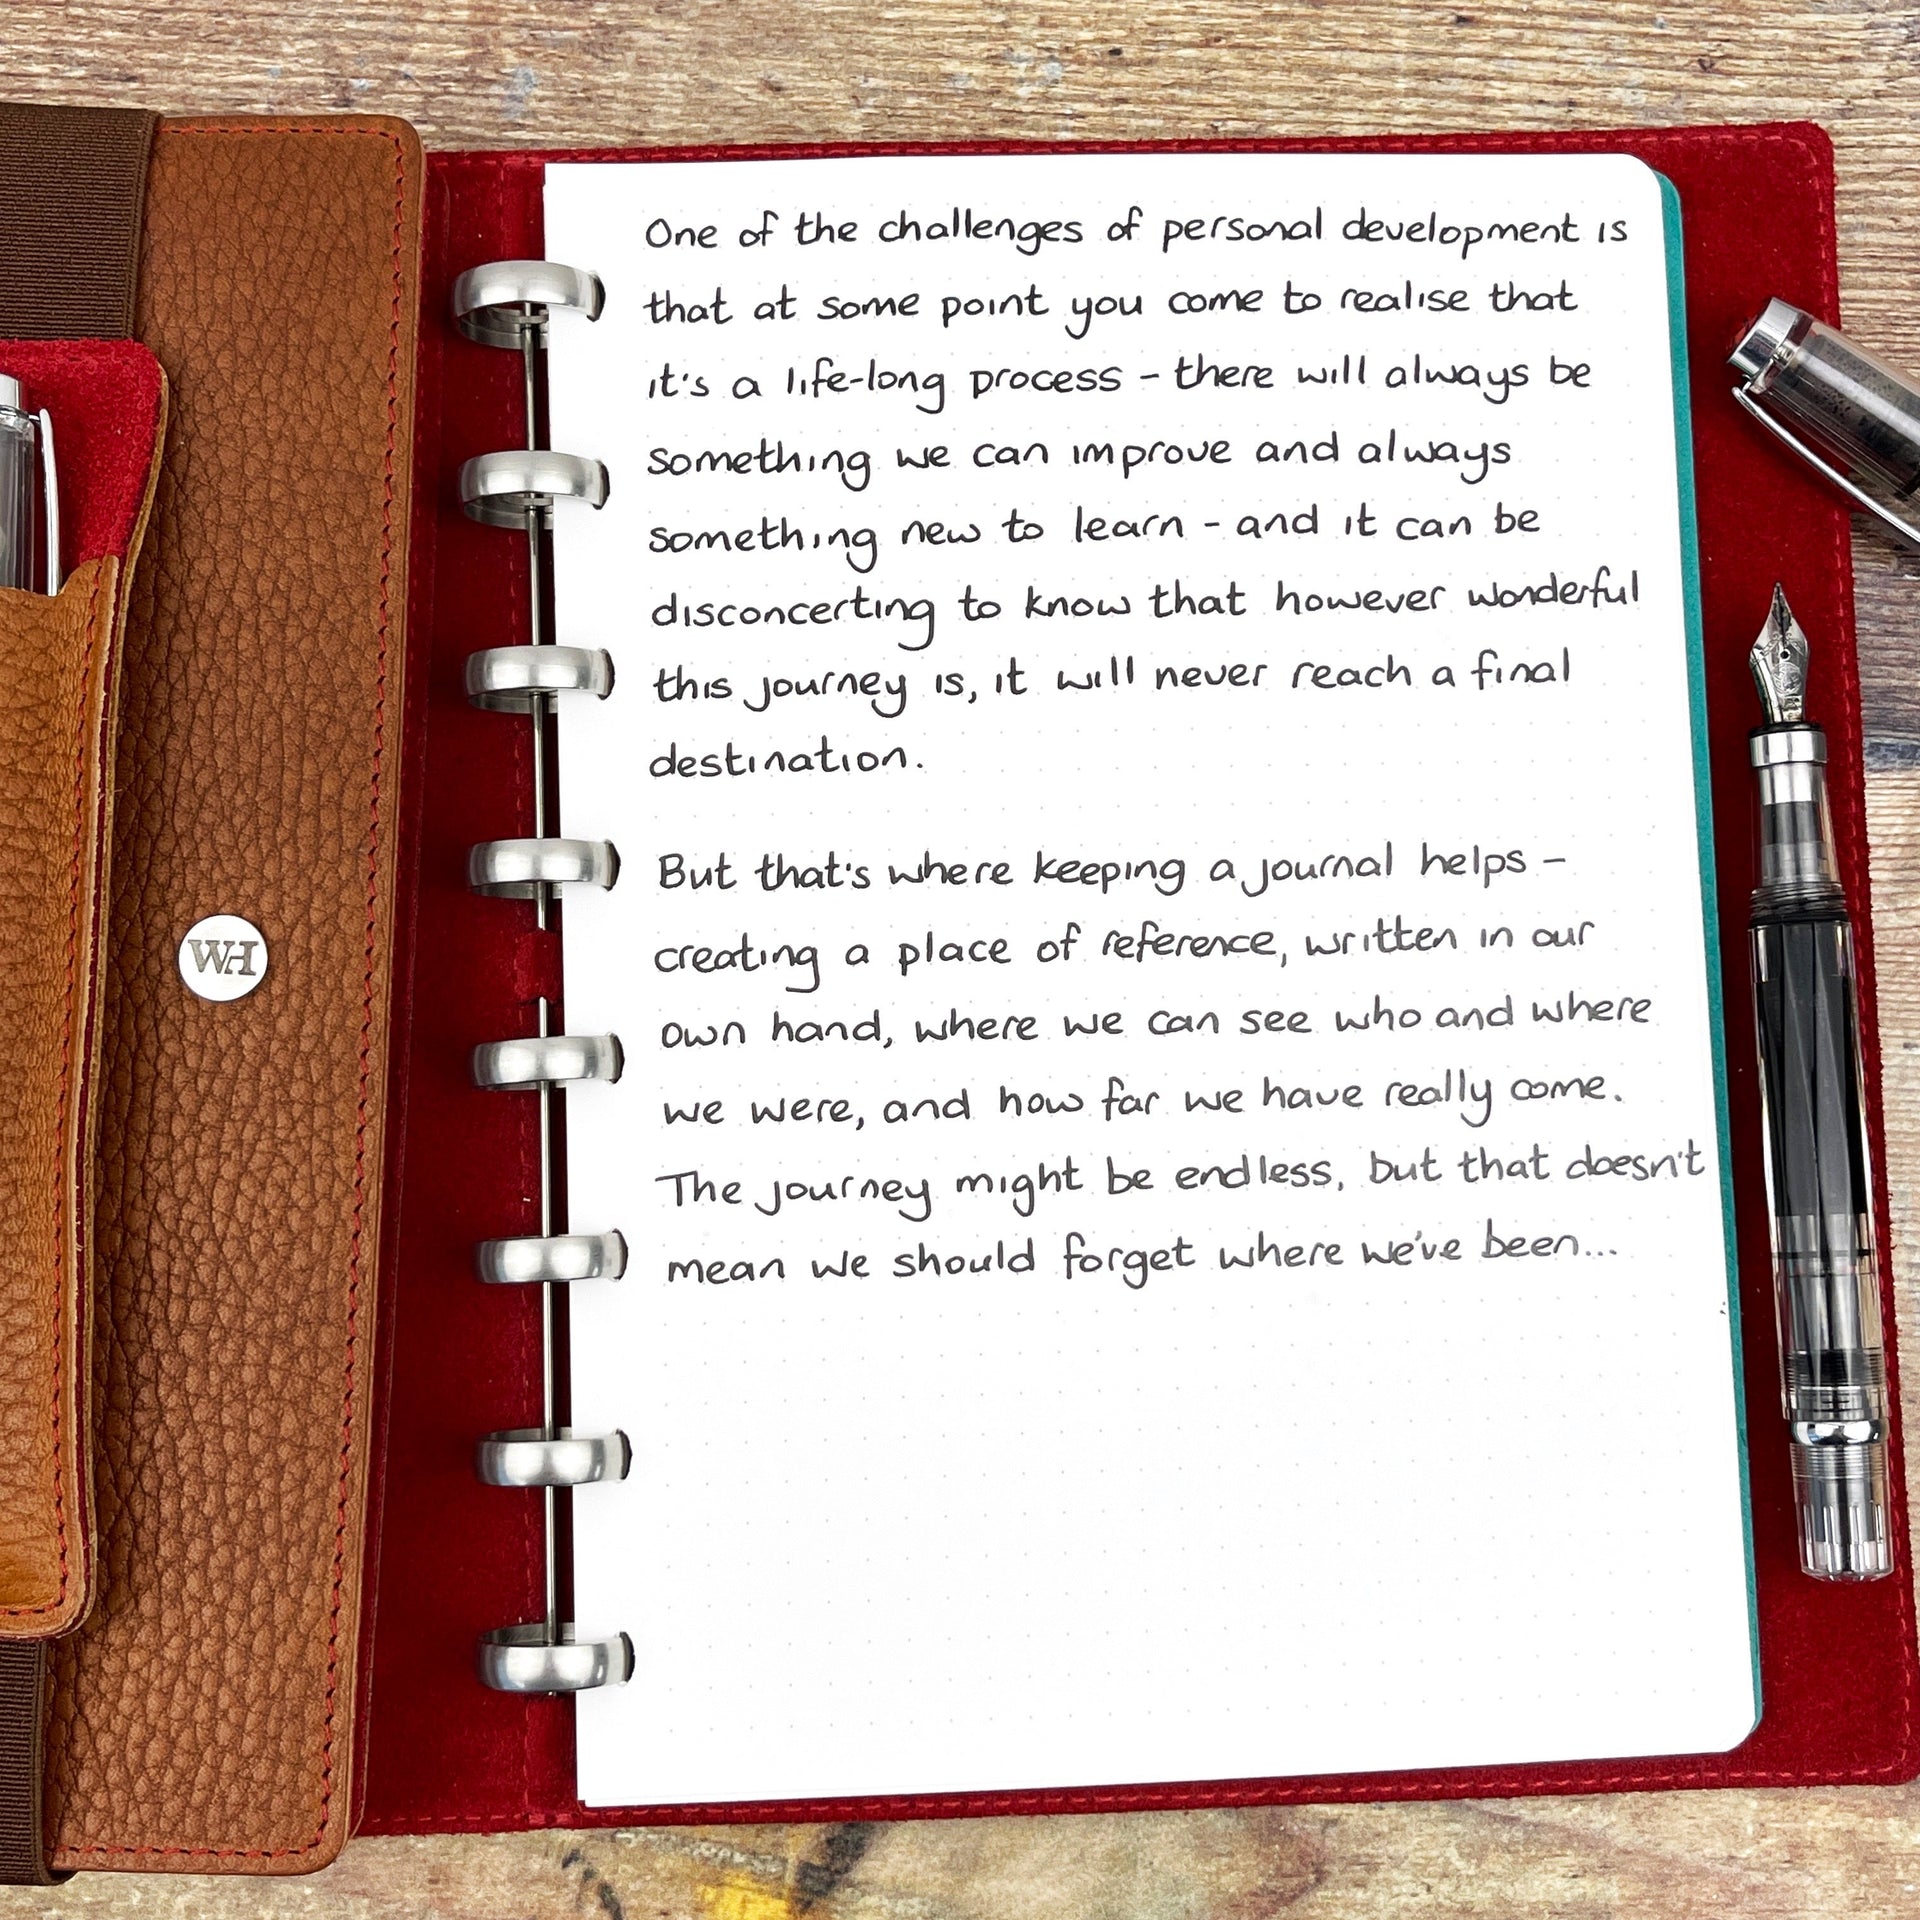 One of the challenges of personal development is
that at some point you come to realise that
it's a life-long process - there will always be
something we can improve and always
something new to learn - and it can be
disconcerting to know that however wonderful
this journey is, it will never reach a final
destination.
But that's where keeping a journal helps -
creating a place of reference, written in our
own hand, where we can see who and where
we were, and how far we have really come.
The journey might be endless, but that doesn't
mean we should forget where we've been...
WH